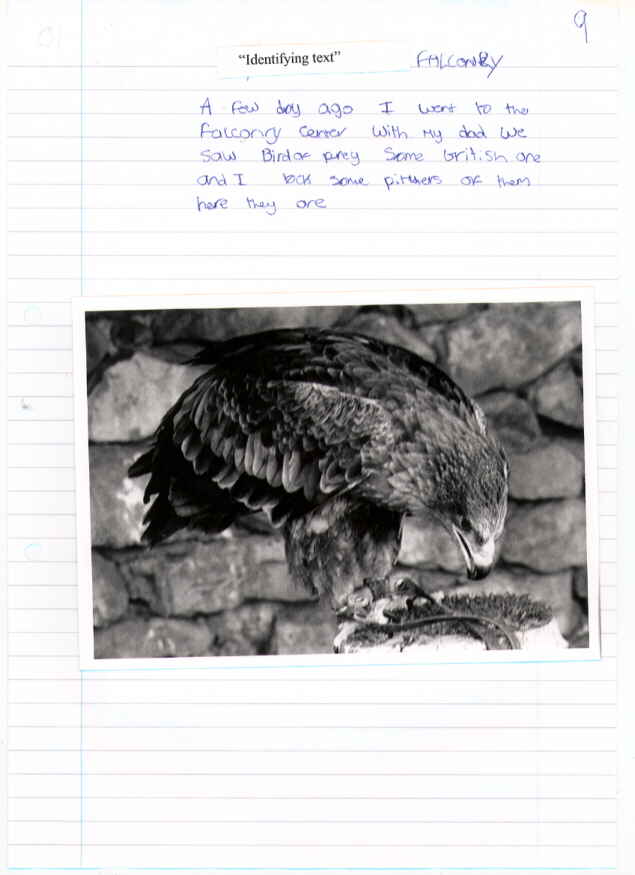 9
"Identifying text" FALCONRY
A few day ago I went to the
Falconry Center With My dad We
Saw Bird of prey Some british one
and I took some pitthers of them
here they are